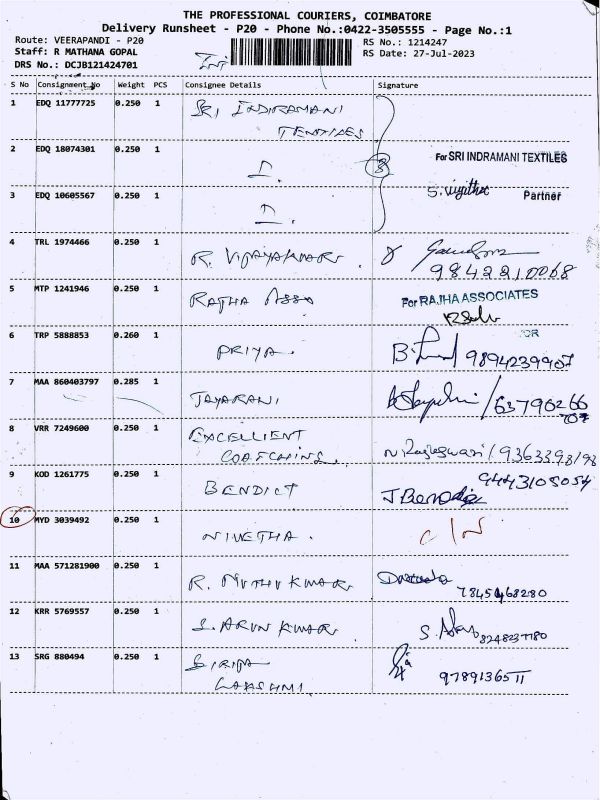 THE PROFESSIONAL COURIERS, COIMBATORE
Delivery Runsheet - P20 - Phone No.:0422-3505555 - Page No.:1
Route: VEERAPANDI - P20
RS No.: 1214247
Staff: R MATHANA GOPAL
RS Date: 27-Jul-2023
DRS No.: DCJB121424701
S No Consignment No Weight PCS Consignee Details Signature
1 EDQ 11777725 0.250 1 SRI INDIRAMANI
TEXTILES
2 EDQ 18074301 0.250 1 For SRI INDRAMANI TEXTILES
3 EDQ 10605567 0.250 1 Partner
4 TRL 1974466 0.250 1 R. VIJAYAKMAR.
9842210068
5 MTP 1241946 0.250 1 RAJHA ASSO For RAJHA ASSOCIATES
6 TRP 5888853 0.260 1 PRIYA. 9894239907
7 MAA 860403797 0.285 1 JAYARANI 63790266
07
8 VRR 7249600 0.250 1 EXCELLIENT
COATCHINS. N Rajeswari/9363398198
9 KOD 1261775 0.250 1 BENDICT 9443105054
J Benedic
10 MYD 3039492 0.250 1 NIVETHA. C/N
11 MAA 571281900 0.250 1 R. MUTHU KUMAR
7845468280
12 KRR 5769557 0.250 1 S. ARUN KUMAR 8248237780
13 SRG 880494 0.250 1 SIRIYA
LAKSHMI. 9789136511